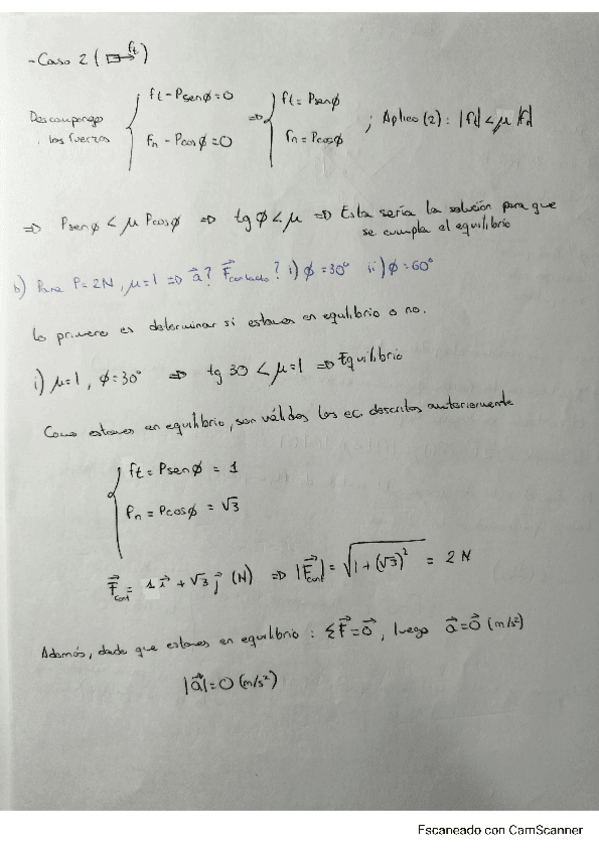 - Caso 2 ( ft )
ft - Psenϕ = 0 ft = Psenϕ
Descompongo los fuerzas ⇒ ; Aplico (2): |ft| < μ |fn|
Fn - Pcosϕ = 0 fn = Pcosϕ
⇒ Psenϕ < μ Pcosϕ ⇒ tgϕ < μ ⇒ Esta sería la solución para que
se cumpla el equilibrio
b) Para P=2N, μ=1 ⇒ a⃗? F⃗contacto? i) ϕ=30° ii) ϕ=60°
Lo primero es determinar si estamos en equilibrio o no.
i) μ=1, ϕ=30° ⇒ tg 30 < μ=1 ⇒ Equilibrio
Como estamos en equilibrio, son válidos las ec. descritas anteriormente
ft = Psenϕ = 1
Fn = Pcosϕ = √3
F⃗cont = 1 i⃗ + √3 j⃗ (N) ⇒ |F⃗cont| = √1 + (√3)² = 2 N
Además, dado que estamos en equilibrio: ΣF⃗ = 0⃗, luego a⃗ = 0⃗ (m/s²)
|a⃗| = 0 (m/s²)
Escaneado con CamScanner